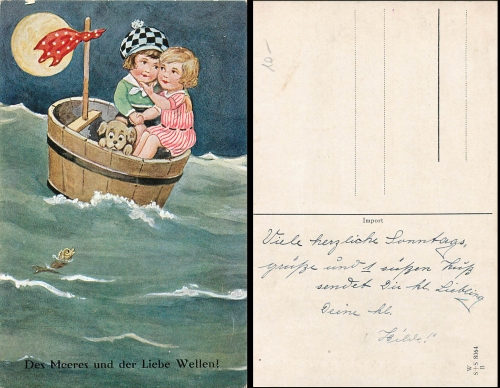 Des Meeres und der Liebe Wellen!
10-
Import
Viele herzliche Sonntags,
grüße und 1 süßen Kuß
sendet Dir kl. Liebling
Deine kl.
Hilde!
W
S+S 8064
B